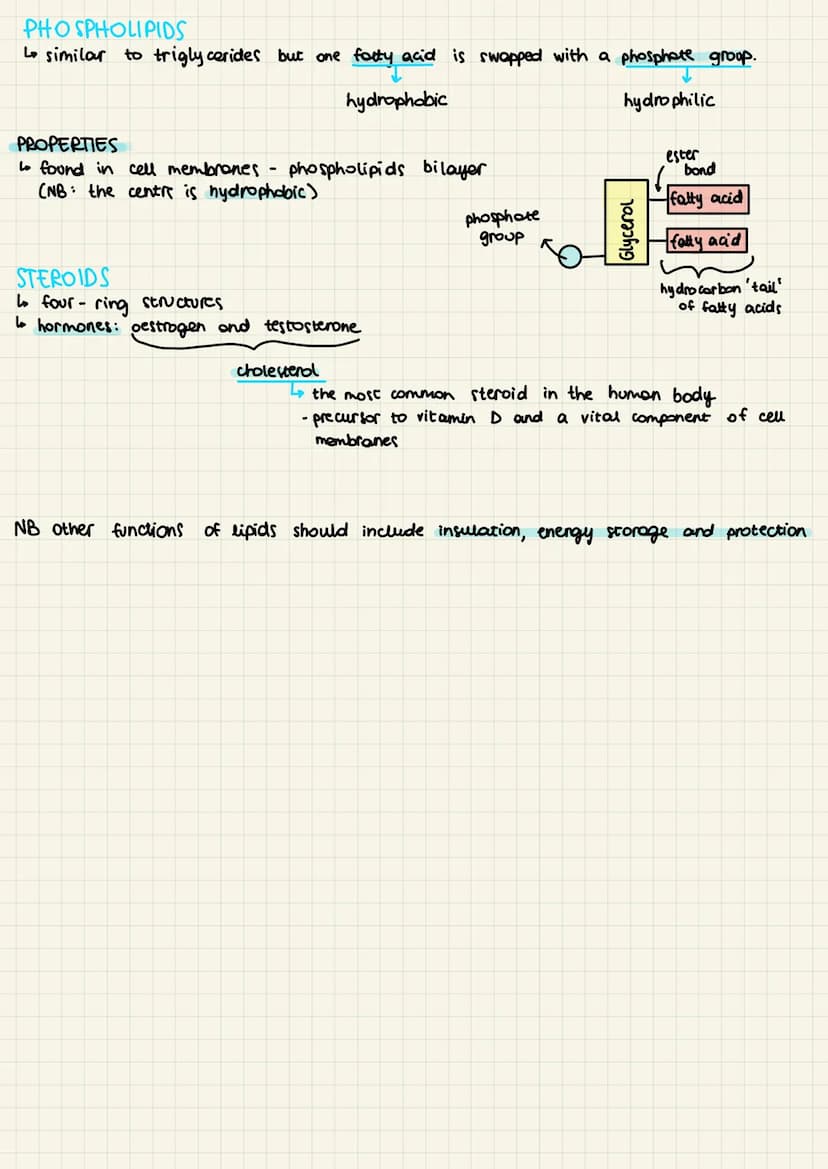 PHOSPHOLIPIDS
↳ similar to triglycerides but one fatty acid is swapped with a phosphate group.
hydrophobic
hydrophilic
PROPERTIES
↳ found in cell membranes - phospholipids bilayer
(NB: the centre is hydrophobic)
ester
bond
fatty acid
fatty acid
Glycerol
phosphate
group
hydrocarbon 'tail'
of fatty acids
STEROIDS
↳ four-ring structures
↳ hormones: oestrogen and testosterone
cholesterol
↳ the most common steroid in the human body
- precursor to vitamin D and a vital component of cell
membranes
NB other functions of lipids should include insulation, energy storage and protection